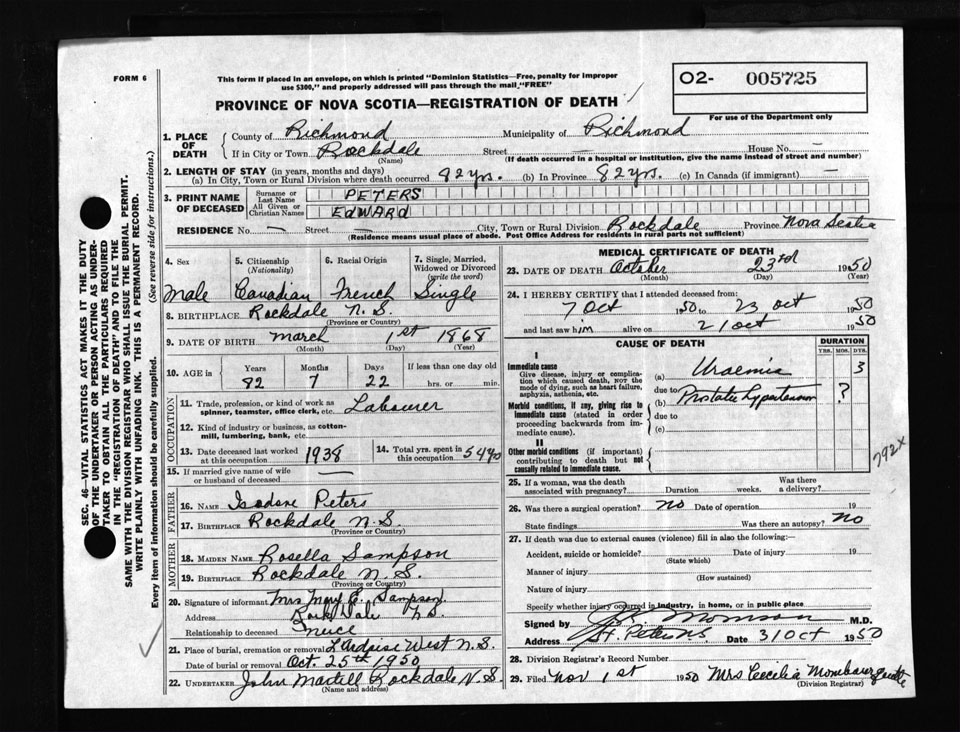 FORM 6
This form if placed in an envelope, on which is printed "Dominion Statistics—Free, penalty for improper
use $300," and properly addressed will pass through the mail "FREE"
O2- 005725
For use of the Department only
PROVINCE OF NOVA SCOTIA—REGISTRATION OF DEATH
1. PLACE OF DEATH County of Richmond Municipality of Richmond
If in City or Town Rockdale Street — House No. —
(Name) (If death occurred in a hospital or institution, give the name instead of street and number)
2. LENGTH OF STAY (in years, months and days)
(a) In City, Town or Rural Division where death occurred 82 yrs. (b) In Province 82 yrs. (c) In Canada (if immigrant) —
3. PRINT NAME OF DECEASED Surname or Last Name PETERS
All Given or Christian Names EDWARD
RESIDENCE No. — Street — City, Town or Rural Division Rockdale Province Nova Scotia
(Residence means usual place of abode. Post Office Address for residents in rural parts not sufficient)
4. Sex 5. Citizenship (Nationality) 6. Racial Origin 7. Single, Married, Widowed or Divorced (write the word)
Male Canadian French Single
8. BIRTHPLACE Rockdale N.S.
(Province or Country)
9. DATE OF BIRTH March 1st 1868
(Month) (Day) (Year)
10. AGE in Years Months Days If less than one day old
82 7 22 hrs. or min.
OCCUPATION
11. Trade, profession, or kind of work as spinner, teamster, office clerk, etc. Labourer
12. Kind of industry or business, as cotton-mill, lumbering, bank, etc.
13. Date deceased last worked at this occupation 1938 14. Total yrs. spent in this occupation
15. If married give name of wife or husband of deceased
FATHER
16. NAME Isadore Peters
17. BIRTHPLACE Rockdale N.S.
(Province or Country)
MOTHER
18. MAIDEN NAME Rosella Sampson
19. BIRTHPLACE Rockdale N.S.
(Province or Country)
20. Signature of informant Mrs Mary E. Sampson
Address Rockdale N.S.
Relationship to deceased niece
21. Place of burial, cremation or removal L'Ardoise West N.S.
Date of burial or removal Oct. 25th 1950
22. UNDERTAKER John Martell Rockdale N.S.
(Name and address)
MEDICAL CERTIFICATE OF DEATH
23. DATE OF DEATH October 23rd 1950
(Month) (Day) (Year)
24. I HEREBY CERTIFY that I attended deceased from:
7 Oct 1950 to 23 Oct 1950
and last saw him alive on 21 Oct 1950
CAUSE OF DEATH DURATION
YRS. MOS. DYS.
I
Immediate cause
Give disease, injury or complication which caused death, NOT the mode of dying, such as heart failure, asphyxia, asthenia, etc.
(a) Uraemia 3
due to
(b) Prostatic ?
due to
(c)
Morbid conditions, if any, giving rise to immediate cause (stated in order proceeding backwards from immediate cause).
II
Other morbid conditions (if important) contributing to death but not causally related to immediate cause.
792x
25. If a woman, was the death associated with pregnancy? Duration weeks. Was there a delivery?
26. Was there a surgical operation? no Date of operation 19
State findings Was there an autopsy? no
27. If death was due to external causes (violence) fill in also the following:—
Accident, suicide or homicide? Date of injury 19
(State which)
Manner of injury
(How sustained)
Nature of injury
Specify whether injury occurred in industry, in home, or in public place
Signed by M.D.
Address St. Peters Date 31 Oct 1950
28. Division Registrar's Record Number
29. Filed Nov 1st 1950 Mrs Cecilia Mombourquette
(Division Registrar)
SEC. 46—VITAL STATISTICS ACT MAKES IT THE DUTY
OF THE UNDERTAKER OR PERSON ACTING AS UNDER-
TAKER TO OBTAIN ALL THE PARTICULARS REQUIRED
IN THE "REGISTRATION OF DEATH" AND TO FILE THE
SAME WITH THE DIVISION REGISTRAR WHO SHALL ISSUE THE BURIAL PERMIT.
WRITE PLAINLY WITH UNFADING INK. THIS IS A PERMANENT RECORD.
Every item of information should be carefully supplied. (See reverse side for instructions.)